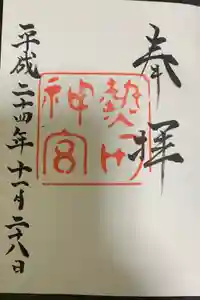 奉拝
熱田神宮
平成二十四年十一月二十八日